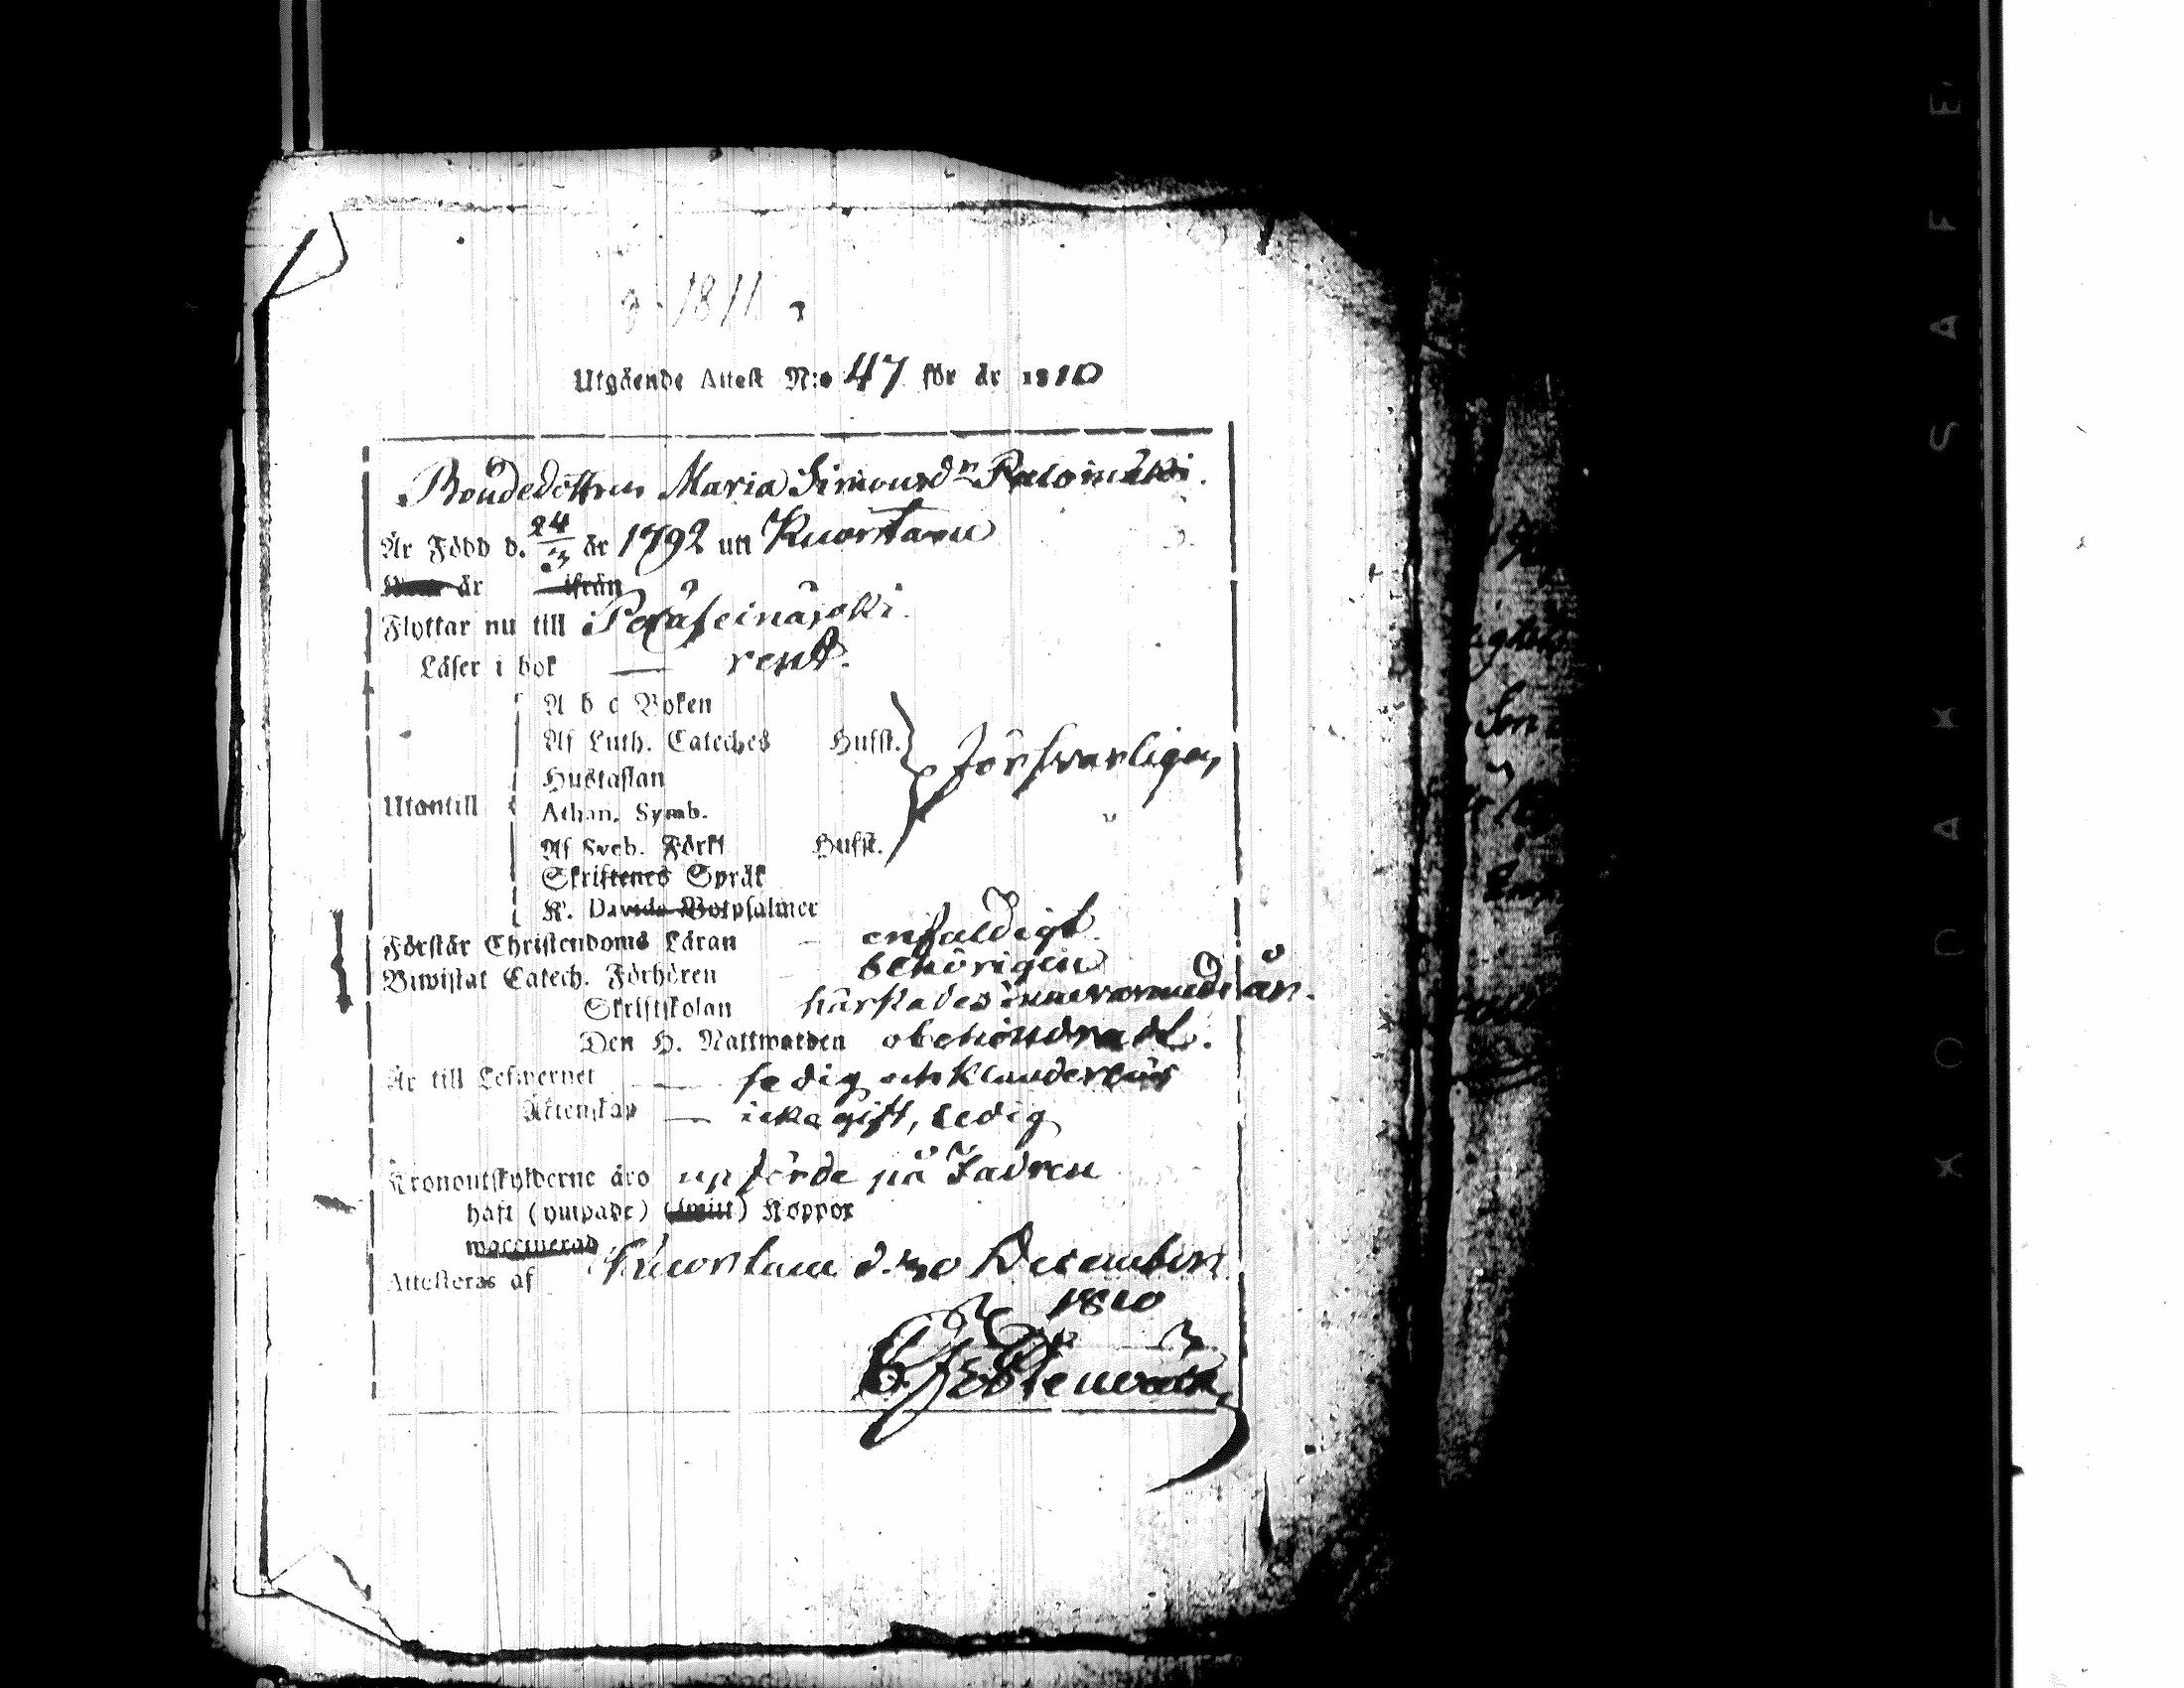 1811
Utgående Attest N:o 47 för år 1810
Bondedottren Maria Simonsdr Palomäki.
Är Född d. 24/3 år 1792 uti Kuortane
år ifrån
Flyttar nu till Peräseinäjoki.
Läser i bok — rent.
A b c Boken
Af Luth. Cateches Hufst.
försvarligen
Hustaflan
Utantill
Athan. Symb.
Af Sveb. Förkl Hufst.
Skriftenes Språk
K. Davids Botpsalmer
Förstår Christendoms Läran - enfaldigt.
Biwistat Catech. Förhören - behörigen
Skriftskolan innevarande år.
Den H. Nattwarden obehindrad.
Är till Lefwernet — sedig och klanderlös
Äktenskap — icke gift, ledig
Kronoutskylderne äro upförde på Fadren
haft (ympade) Koppor
waccinerad
Attesteras af Kuortane d. 30 December
1810